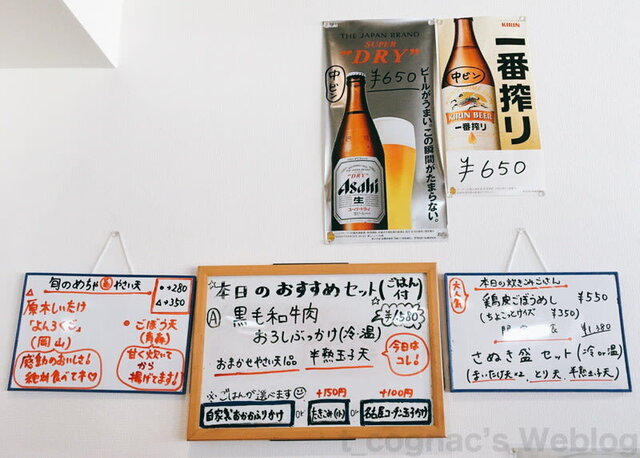 THE JAPAN BRAND
SUPER
"DRY"
中ビン
¥650
ビールがうまい。この瞬間がたまらない。
"DRY"
Asahi
生
KIRIN
一番搾り
中ビン
KIRIN BEER
一番搾り
¥650
旬のめちゃ やさい天
●→+280
△→+350
△原木しいたけ
「よんろくご」
(岡山)
感動のおいしさ!
絶対食べて
●ごぼう天
(青森)
甘く炊いて
から
揚げてます!
本日のおすすめセット(ごはん付)
A 黒毛和牛肉
¥1580
おろしぶっかけ(冷・温)
おまかせやさい天1品 半熟玉子天
今日は
コレ!
※ごはんが選べます
+150円
+100円
自家製おかかふりかけ or たきこみ(小) or 名古屋コーチン玉子かけ
大人気
本日の炊きこみごはん
鶏炭ごぼうめし ¥550
(ちょこっとサイズ ¥350)
¥1,380
さぬき盛セット(冷or温)
(まいたけ天×2、とり天、半熟玉子天)
t_cognac's Weblog